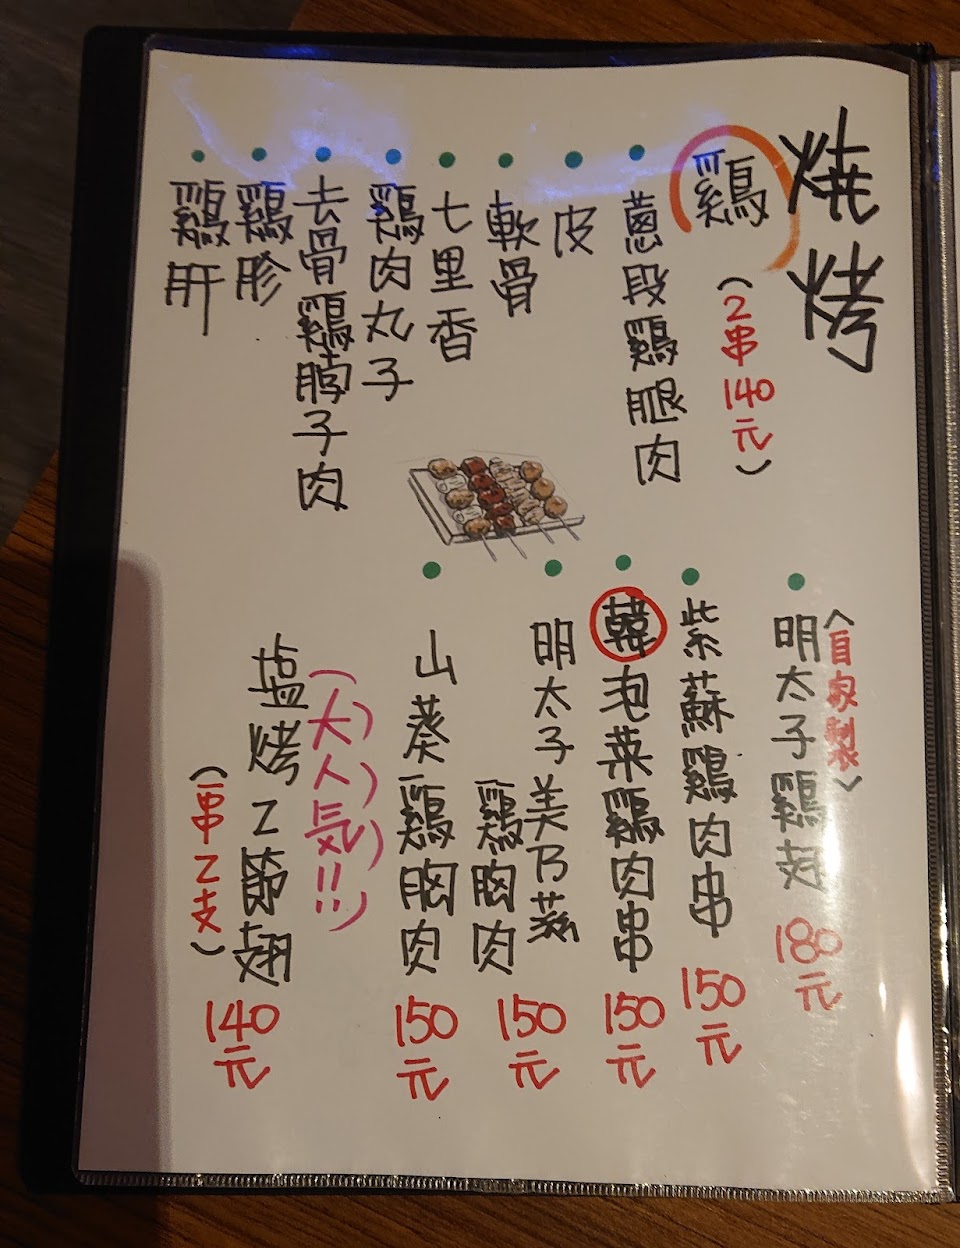 燒烤
鷄
(2串140元)
蔥段鷄腿肉
皮
軟骨
七里香
鷄肉丸子
去骨鷄脖子肉
鷄胗
鷄肝
<自家製>
明太子鷄翅 180元
紫蘇鷄肉串 150元
韓泡菜鷄肉串 150元
明太子美乃滋
鷄胸肉 150元
山葵鷄胸肉 150元
(大人気!!)
塩烤2節翅 140元
(一串2支)